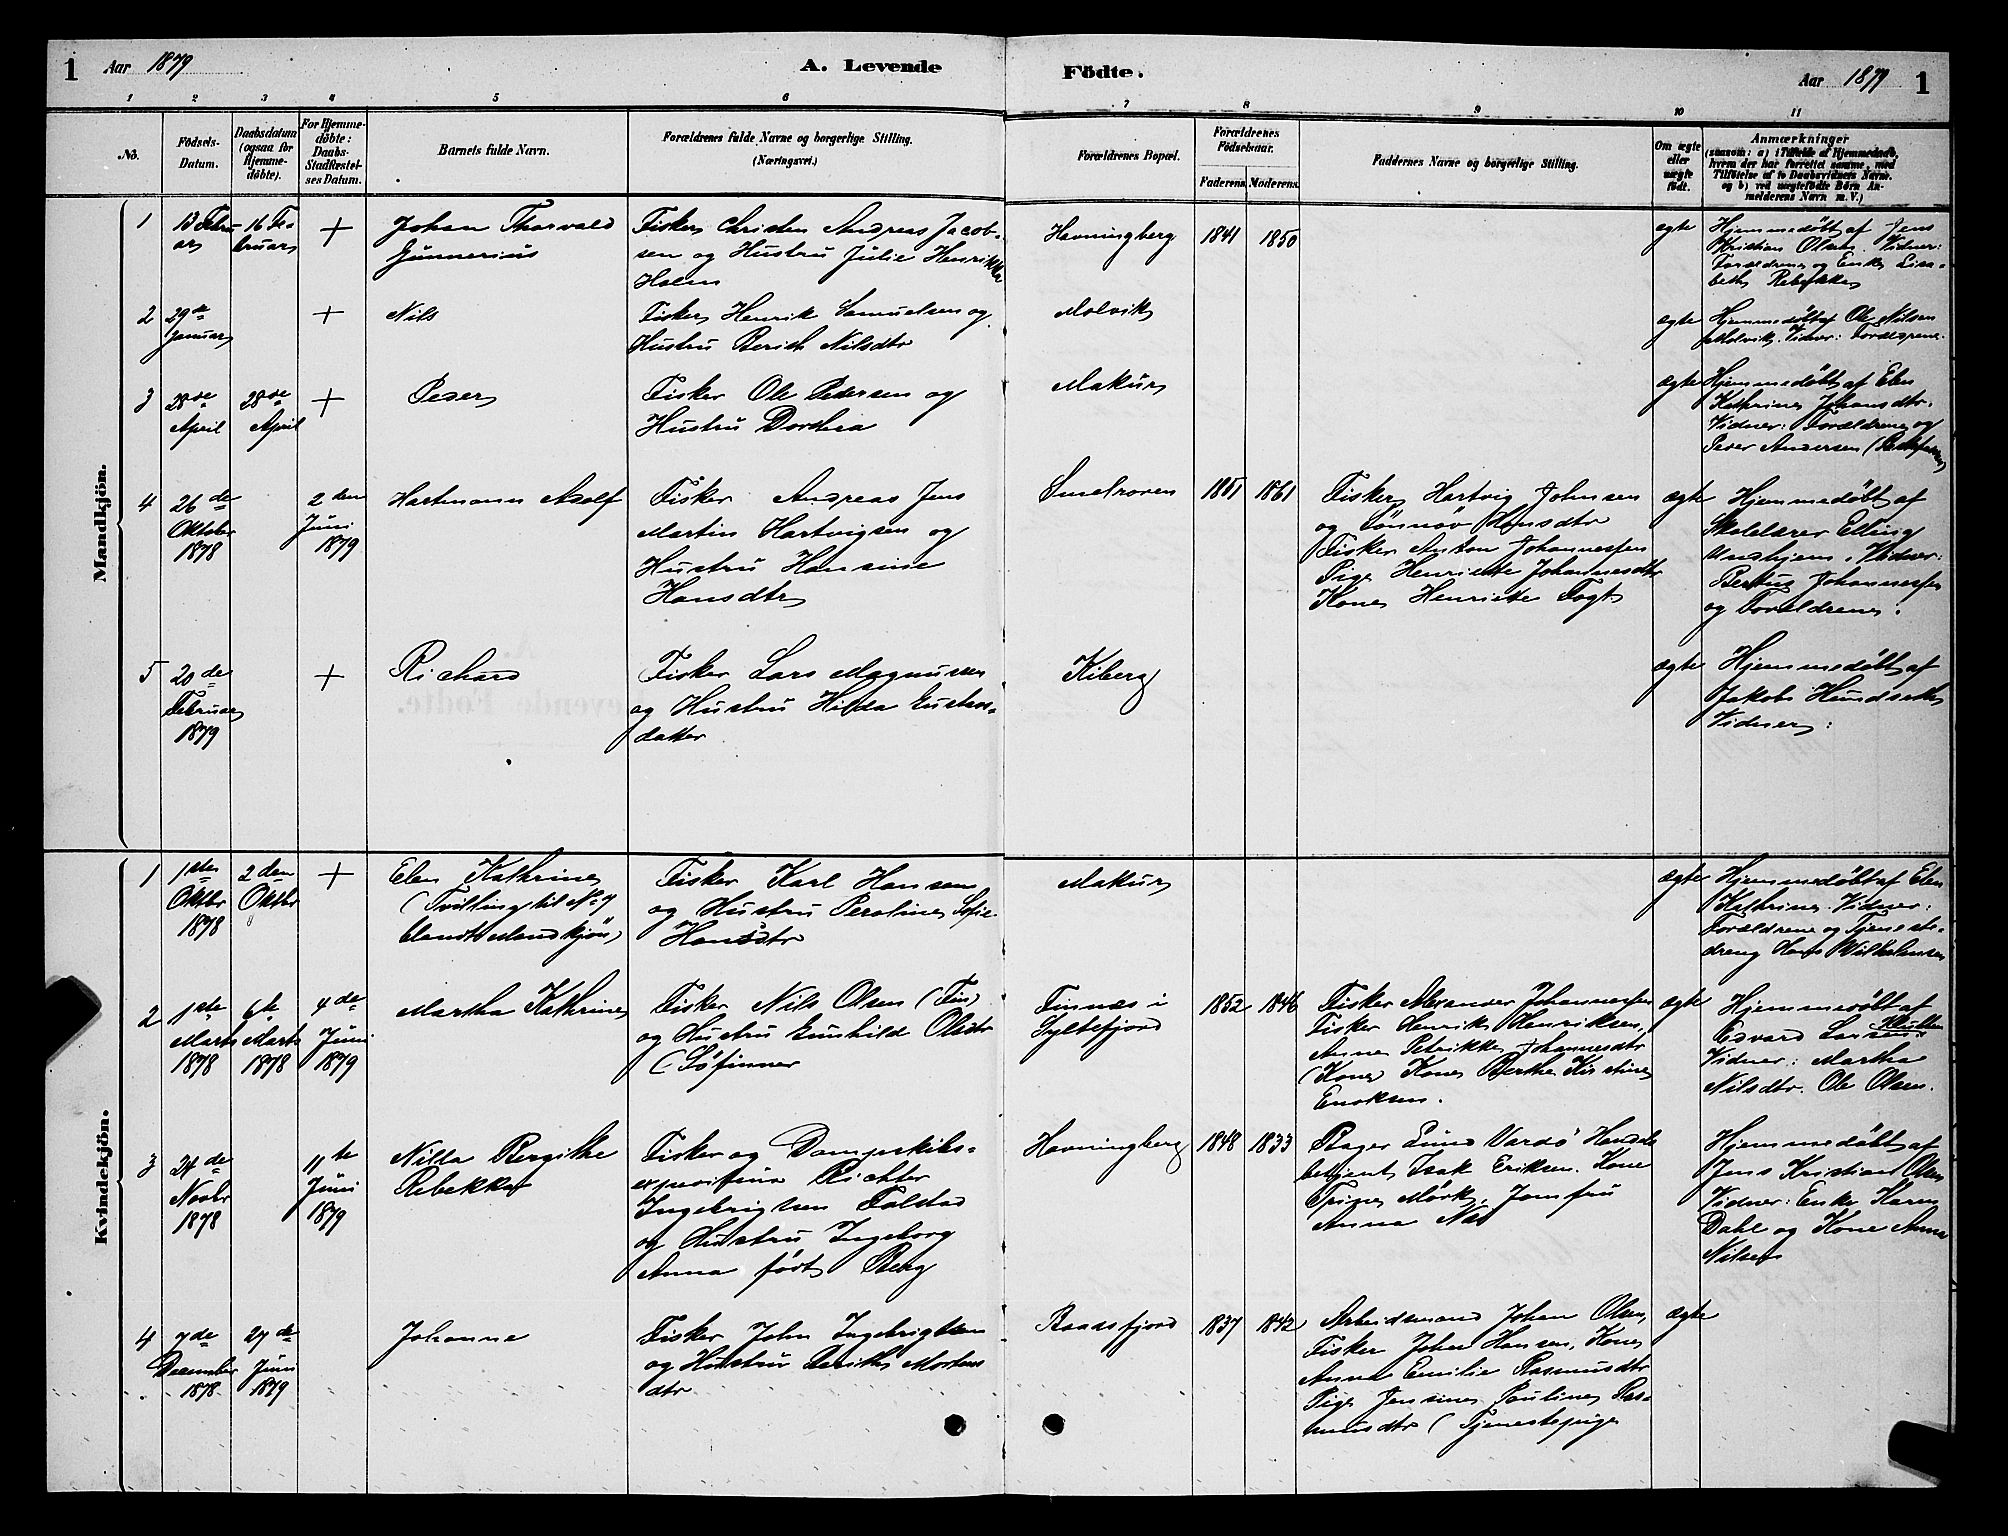 1 Aar 1879 A. Levende Födte. Aar 1879 1
1 2 3 4 5 6 7 8 9 10 11
No.
Födsels-
Datum.
Daabsdatum
(ogsaa for
Hjemme-
döbte).
For Hjemme-
döbte:
Daabs-
Stadfæstel-
ses Datum.
Barnets fulde Navn.
Forældrenes fulde Navne og borgerlige Stilling.
(Næringsvei.)
Forældrenes Bopæl.
Forældrenes
Födselsaar.
Faderens. Moderens.
Faddernes Navne og borgerlige Stilling.
Om ægte
eller
uægte
födt.
Anmærkninger
(saasom: a) i Tilfælde af Hjemmedaab,
hvem der har forrettet samme, med
Tilföielse af to Daabsvidners Navne,
og b) ved uægtefödte Börn An-
melderens Navn m. V.)
Mandkjön.
1
13 Febru
ar
16 Fe-
bruar
+
Johan Thorvald
Gunnerius
Fisker Christen Andreas Jacob-
sen og Hustru Julie Henrikke
Holm
Havningberg
1841
1850
ægte
Hjemmedøbt af Jens
Kristian Olsen. Vidner:
Forældrene og Enke Lisa-
beth Rebekka
2
29de
Januar
+
Nils
Fisker Henrik Samuelsen og
Hustru Berith Nilsdtr
Molvik
ægte
Hjemmedøbt af Ole Nilsen
Molvik. Vidner: Forældrene
3
28de
April
28de
April
+
Peder
Fisker Ole Pedersen og
Hustru Dorthea
Makur
ægte
Hjemmedøbt af Elen
Kathrine Johansdtr.
Vidner: Forældrene og
Peder Andersen
4
26de
Oktober
1878
2den
Juni
1879
Hartmann Adolf
Fisker Andreas Jens
Martin Hartvigsen og
Hustru Hansine
Hansdtr
Smelroren
1861
Fisker Hartvig Johnsen
og Sønnøv Hansdtr
Fisker Anton Johannessen
Pige Henriette Johannesdtr
Kone Henriete Fogt
ægte
Hjemmedøbt af
Skolelærer Elling
Undhjem. Vidner:
Bertus Johannessen
og Forældrene.
5
20de
Februar
1879
+
Richard
Fisker Lars Magnussen
og Hustru Hilda Gustavs-
datter
Kiberg
ægte
Hjemmedøbt af
Jakob
Vidner:
Kvindekjön.
1
1ste
Oktbr
1878
2den
Oktbr
+
Elen Kathrine
(Tvilling til No 7
blandt Mandkjön)
Fisker Karl Hansen
og Hustru Peroline Sofie
Hansdtr
Makur
ægte
Hjemmedøbt af Elen
Kathrine. Vidner:
Forældrene og Tjeneste-
dreng Hans Wilhelmsen
2
1ste
Marts
1878
6te
Marts
1878
4de
Juni
1879
Martha Kathrine
Fisker Nils Olsen (Fin)
og Hustru Gunhild Olsdtr
(Søfinner
Finnæs i
Syltefjord
1852
1846
Fisker Alexander Johannessen
Fisker Henrik Henriksen,
Anne Petrikke Johannesdtr
(Kone) Kone Berthe Kirstine
Enoksen.
ægte
Hjemmedøbt af
Edvard Larsen
Vidner: Martha
Nilsdtr. Ole Olsen.
3
24de
Novbr
1878
11te
Juni
1879
Nilla Bergithe
Rebekka
Fisker og Dampskibs-
expeditør Richter
Ingebrigtsen Falstad
og Hustru Ingeborg
Anna født Berg
Havningberg
1848
1833
Bager Lund Vardø Handels
betjent Isak Eriksen. Kone
Trine Mørk, Jomfru
Anna Næs
Hjemmedøbt af
Jens Kristian Olsen
Vidner: Enke Karen
Dahl og Kone Anna
Nilsen
4
7de
December
1878
27de
Juni
1879
Johanne
Fisker John Ingebrigtsen
og Hustru Berith Mortens
dtr
Baadsfjord
1837
1842
Arbeidsmand Johan Olsen,
Fisker Johan Hansen, Kone
Anne Emilie Rasmusdtr
Pige Jensine Pauline Ras-
musdtr (Tjenestepige
ægte